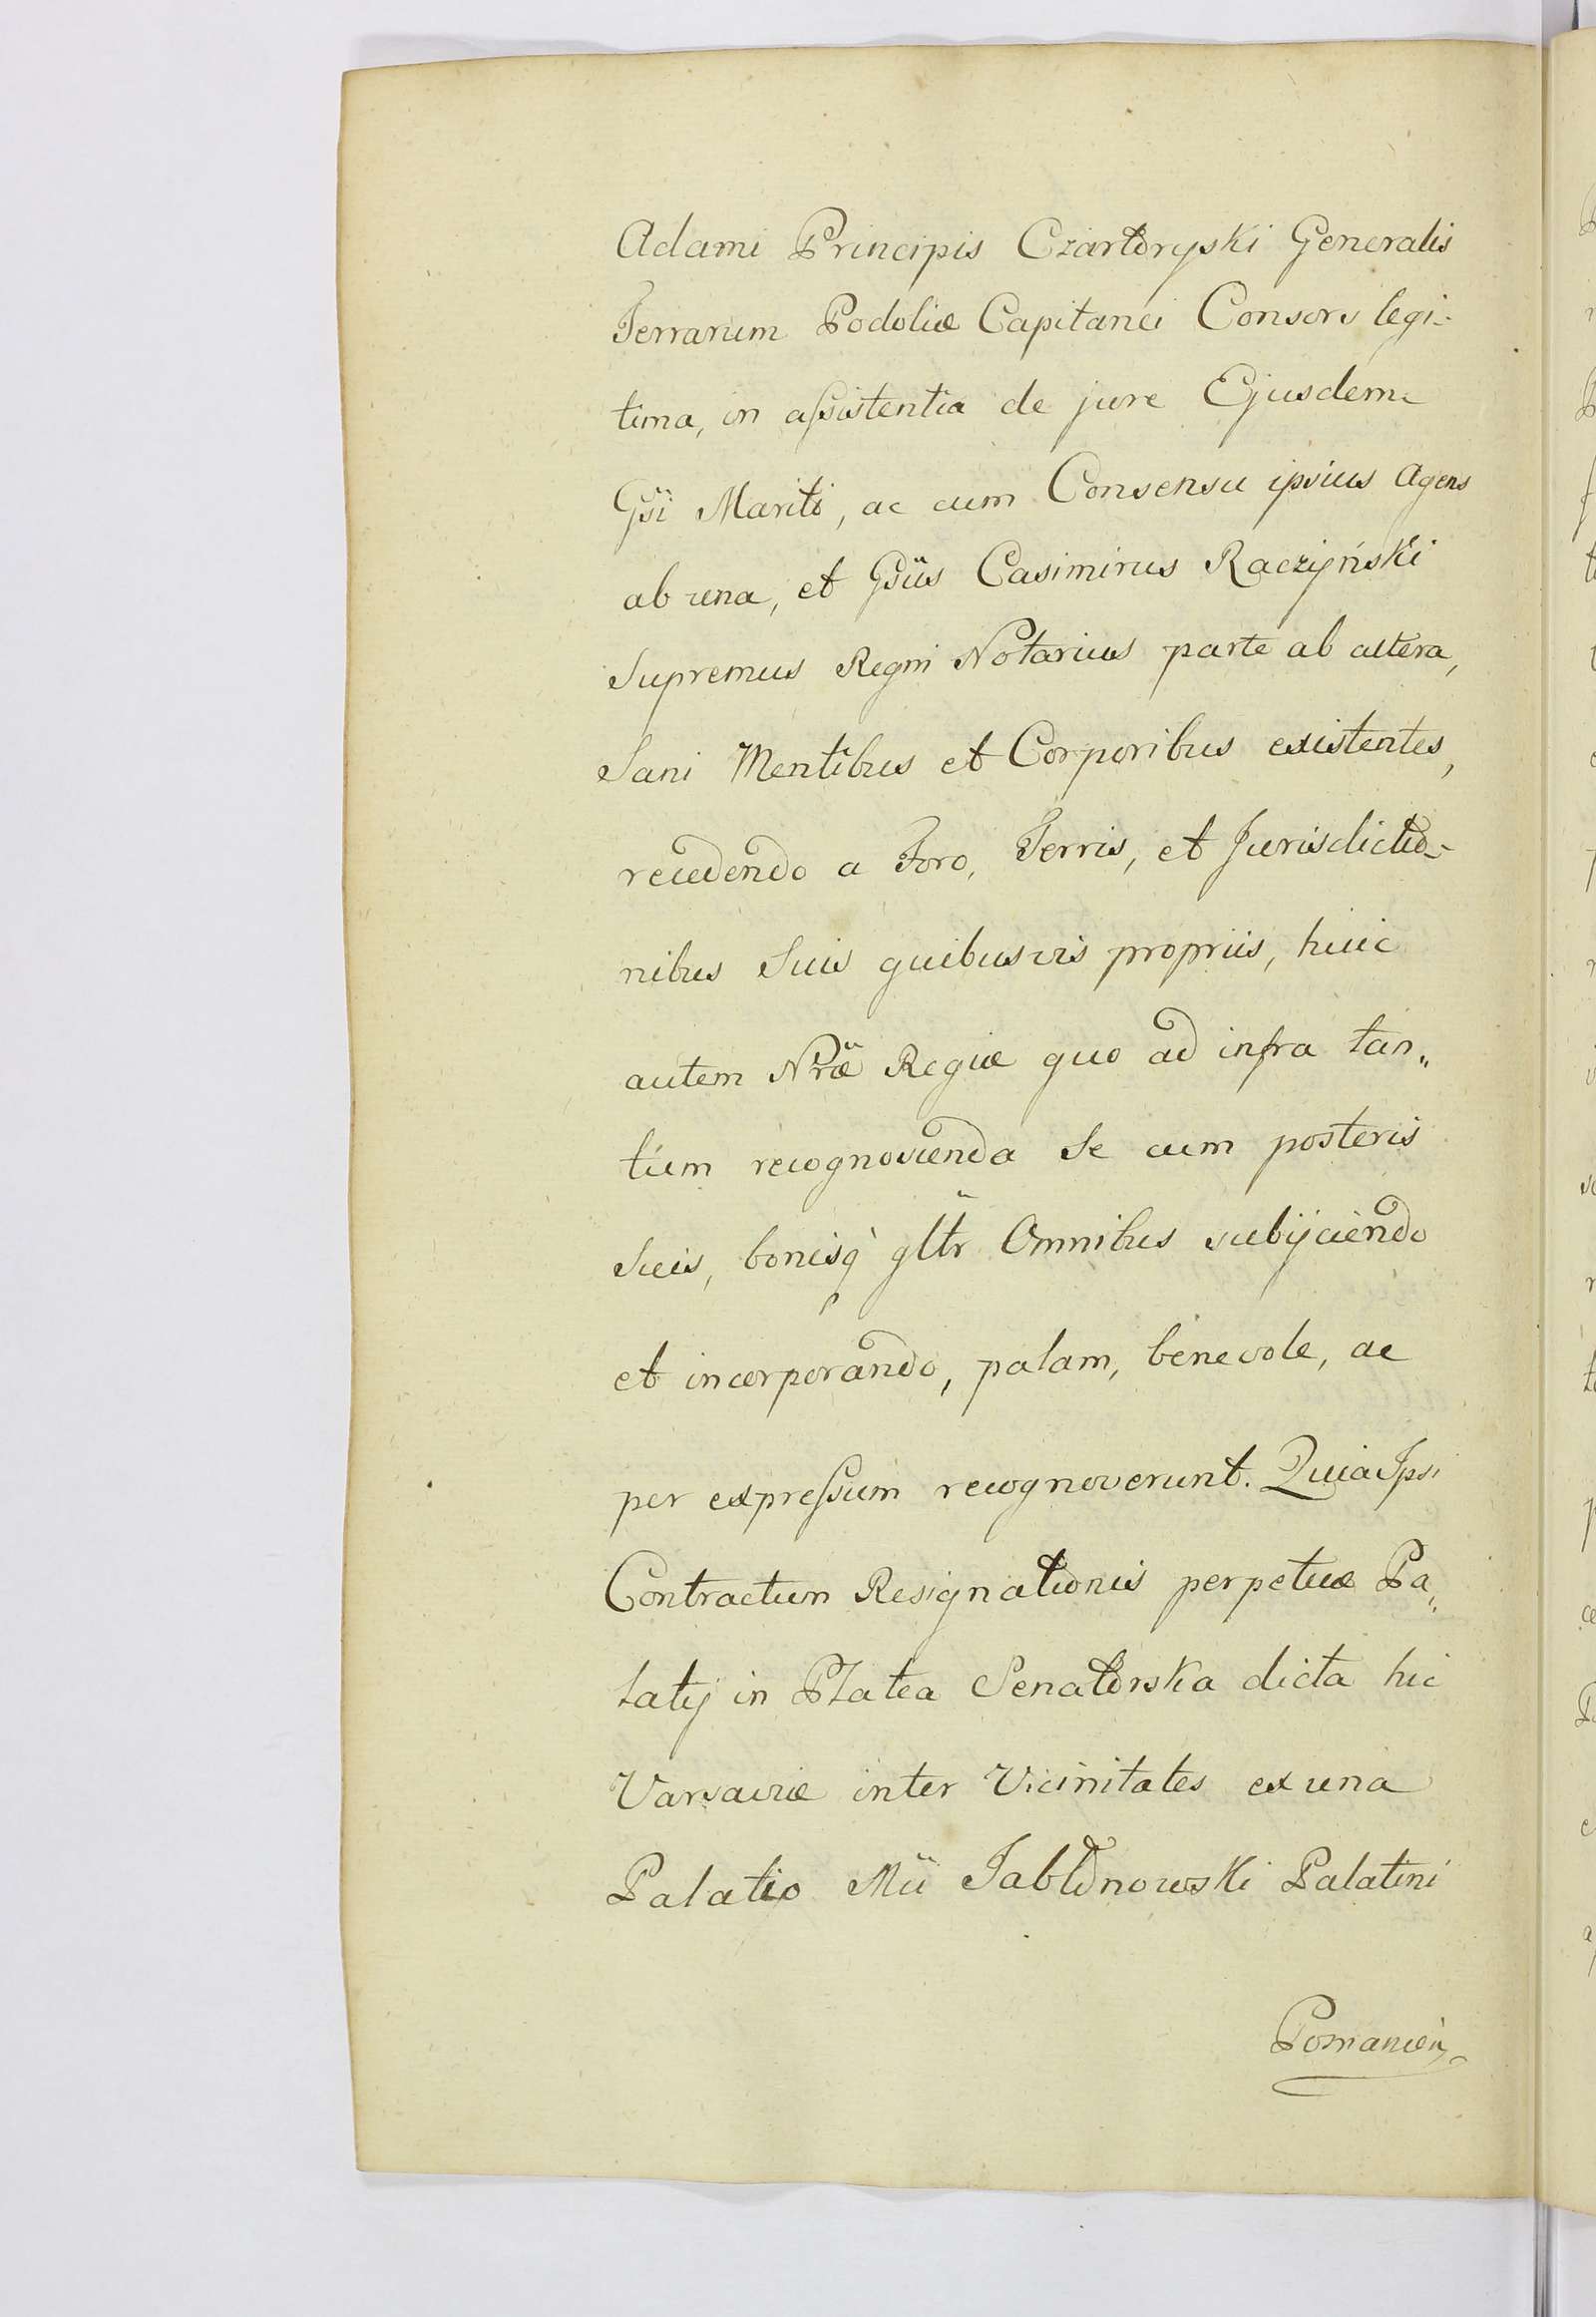 Adami Principis Czartoryski Generalis
Terrarum Podoliæ Capitanei Consors legi-
tima, in assistentia de jure Ejusdem
Gsi Mariti, ac cum Consensu ipsius Agens
ab una, et Gsus Casimirus Raczyński
Supremus Regni Notarius parte ab altera,
Sani Mentibus et Corporibus existentes,
recedendo a Foro, Terris, et Jurisdictio-
nibus Suis quibusvis propriis, huic
autem Nræ Regiæ quo ad infra tan„
tum recognoscenda Se cum posteris
Suis, bonisq̀ glltr Omnibus subijciendo
et incorporando, palam, benevole, ac
per expressum recognoverunt. Quia Ipsi
Contractum Resignationis perpetuæ Pa„
latij in Platea Senatorska dicta hic
Varsaviæ inter Vicinitates ex una
Palatio Mii Jabłonowski Palatini